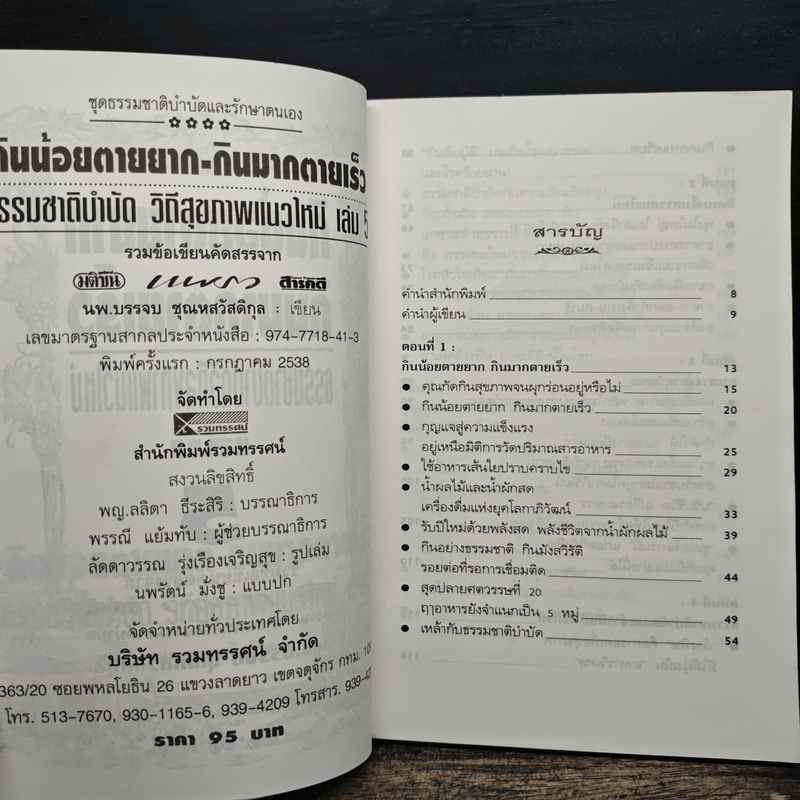 ชุดธรรมชาติบำบัดและรักษาตนเอง
กินน้อยตายยาก-กินมากตายเร็ว
ธรรมชาติบำบัด วิถีสุขภาพแนวใหม่ เล่ม 5
รวมข้อเขียนคัดสรรจาก
มติชน แพรว สารคดี
นพ.บรรจบ ชุณหสวัสดิกุล : เขียน
เลขมาตรฐานสากลประจำหนังสือ : 974-7718-41-3
พิมพ์ครั้งแรก : กรกฎาคม 2538
จัดทำโดย
รวมทรรศน์
สำนักพิมพ์รวมทรรศน์
สงวนลิขสิทธิ์
พญ.ลลิตา ธีระสิริ : บรรณาธิการ
พรรณี แย้มทับ : ผู้ช่วยบรรณาธิการ
ลัดดาวรรณ รุ่งเรืองเจริญสุข : รูปเล่ม
นพรัตน์ มั่งชู : แบบปก
จัดจำหน่ายทั่วประเทศโดย
บริษัท รวมทรรศน์ จำกัด
363/20 ซอยพหลโยธิน 26 แขวงลาดยาว เขตจตุจักร กทม.
โทร. 513-7670, 930-1165-6, 939-4209 โทรสาร.
ราคา 95 บาท
สารบัญ
คำนำสำนักพิมพ์ 8
คำนำผู้เขียน 9
ตอนที่ 1 :
กินน้อยตายยาก กินมากตายเร็ว 13
● คุณกัดกินสุขภาพจนผุกร่อนอยู่หรือไม่ 15
● กินน้อยตายยาก กินมากตายเร็ว 20
● กุญแจสู่ความแข็งแรง
อยู่เหนือมิติการวัดปริมาณสารอาหาร 25
● ใช้อาหารเส้นใยปราบคราบไข 29
● น้ำผลไม้และน้ำผักสด
เครื่องดื่มแห่งยุคโลกาภิวัฒน์ 33
● รับปีใหม่ด้วยพลังสด พลังชีวิตจากน้ำผักผลไม้ 39
● กินอย่างธรรมชาติ กินมังสวิรัติ
รอยต่อที่รอการเชื่อมติด 44
● สุดปลายศตวรรษที่ 20
ฤๅอาหารยังจำแนกเป็น 5 หมู่ 49
● เหล้ากับธรรมชาติบำบัด 54